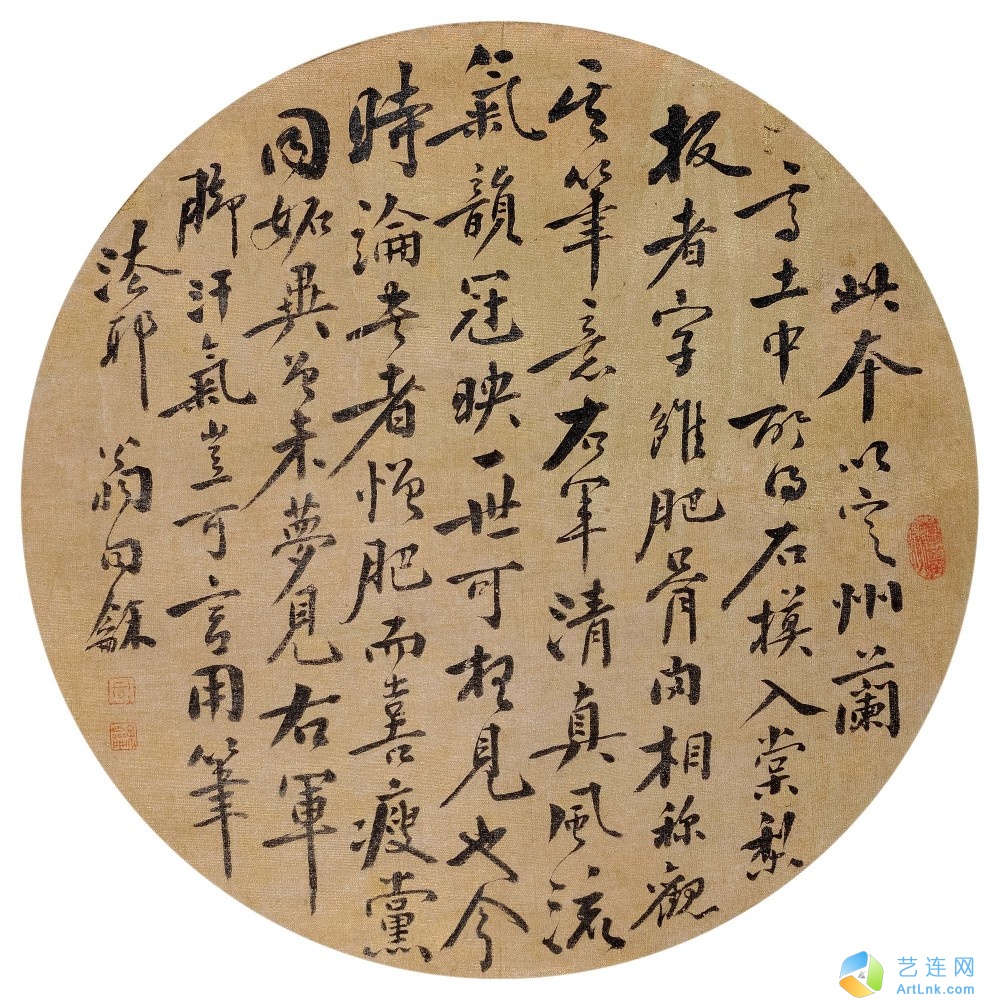 此本以定州蘭
亭土中所得石摸入棠梨
板者字雖肥骨肉相称觀
其筆意右軍清真風流
氣韻冠映一世可想見也今
時論書者憎肥而喜瘦黨
同妬異曾未夢見右軍
脚汗氣豈可言用筆
法耶 翁同龢
艺连网
ArtLnk.com